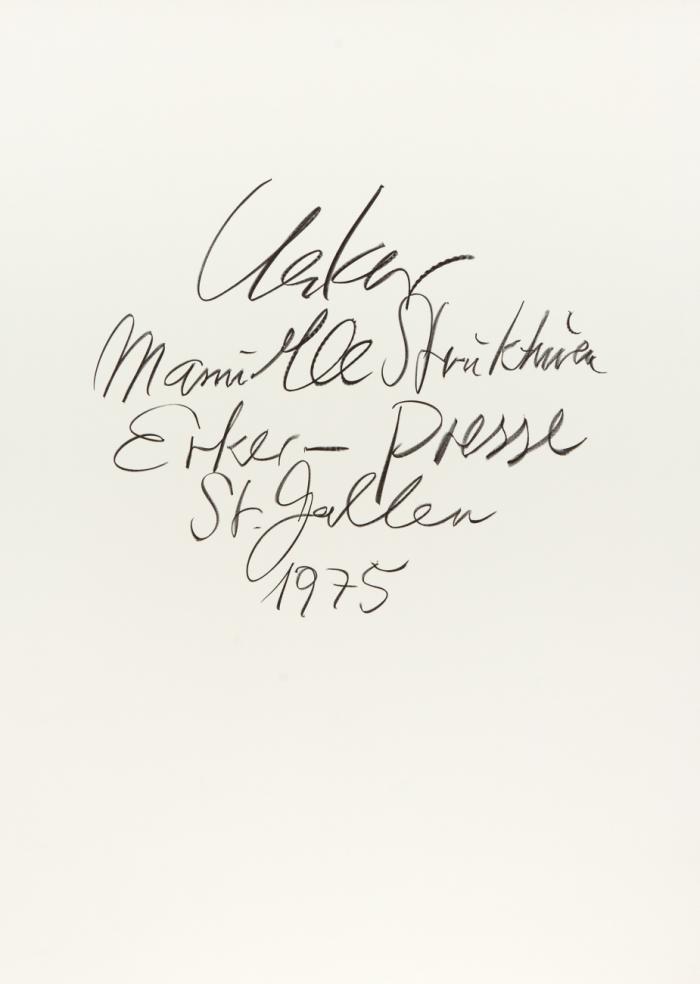 Uecker
Manuelle Strukturen
Erker-Presse
St. Gallen
1975